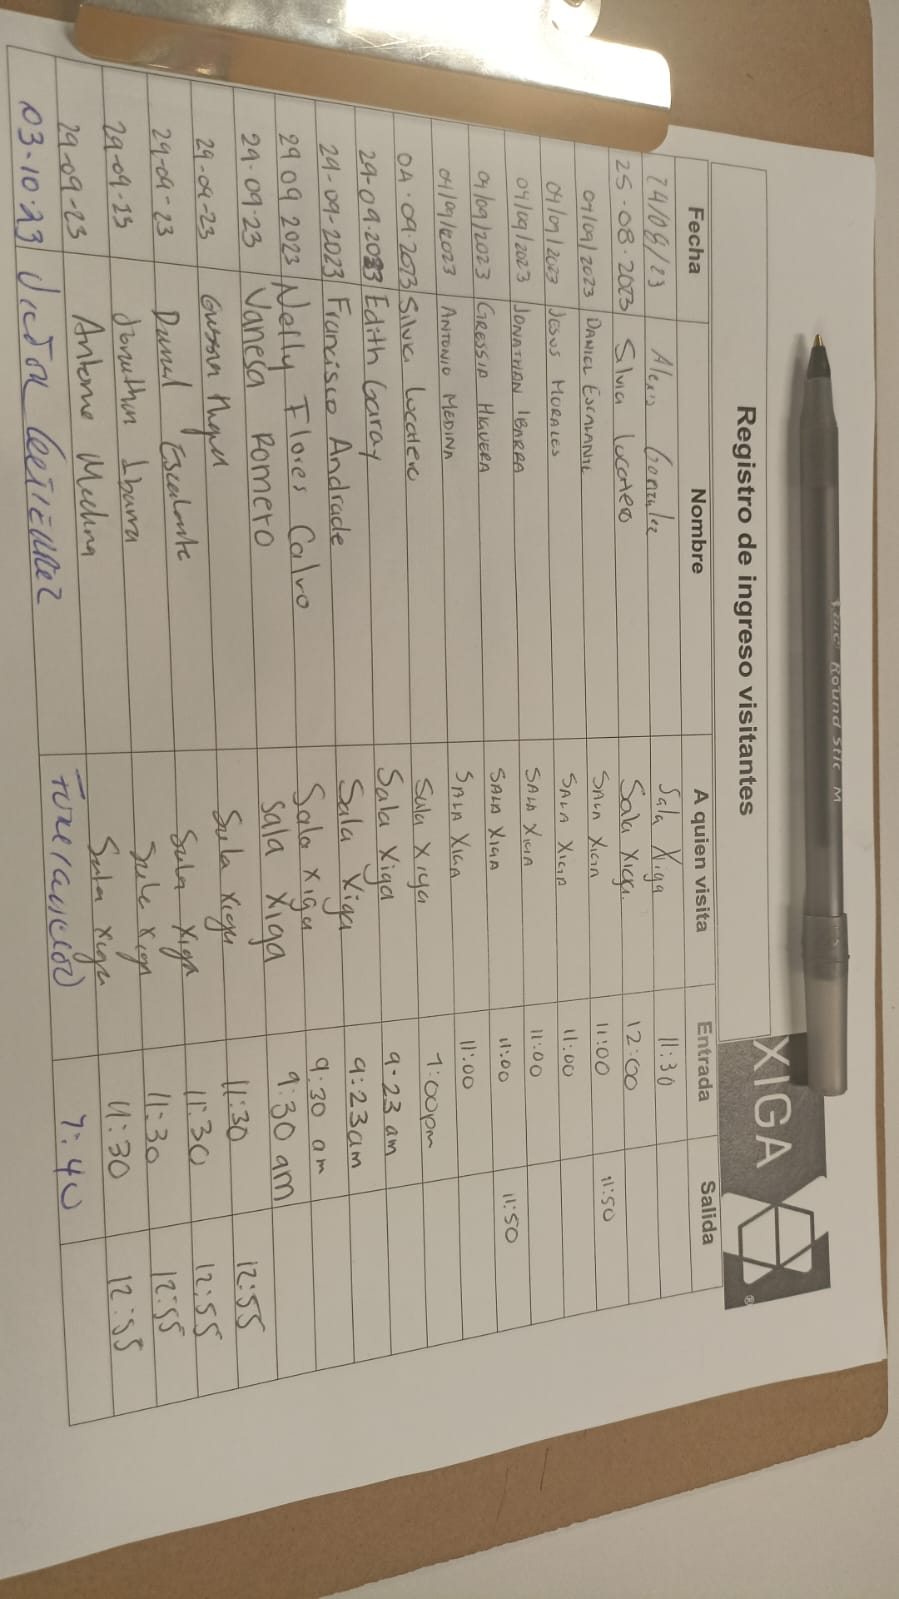 Round Stic M
XIGA
®
Registro de ingreso visitantes
Fecha Nombre A quien visita Entrada Salida
24/08/23 Alexis Gonzalez Sala Xiga 11:30
25-08-2023 Silvia Lucatero Sala Xiga. 12:00
04/09/2023 DANIEL ESCALANTE SALA XIGA 11:00 11:50
04/09/2023 JESUS MORALES SALA XIGA 11:00
04/09/2023 JONATHAN IBARRA SALA XIGA 11:00
04/09/2023 GRESSIA HIGUERA SALA XIGA 11:00 11:50
04/09/2023 ANTONIO MEDINA SALA XIGA 11:00
04-09-2023 Silvia Lucatero Sala Xiga 1:00pm
29-09-2023 Edith Garay Sala Xiga 9-23 am
29-09-2023 Francisco Andrade Sala Xiga 9:23am
29 09 2023 Nelly Flores Calvo Sala Xiga 9:30 am
29-09-23 Vanesa Romero Sala Xiga 9:30 am
29-09-23 Sala Xiga 11:30 12:55
29-09-23 Daniel Escalante Sala Xiga 11:30 12:55
29-09-23 Jonathan Ibarra Sala Xiga 11:30 12:55
29-09-23 Antonio Medina Sala Xiga 11:30 12:55
03-10-23 7:40